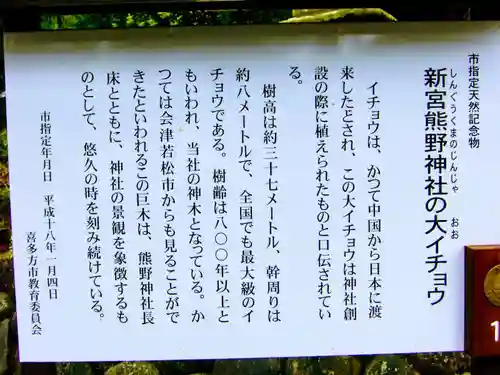 市指定天然記念物
新宮熊野神社の大イチョウ
しんぐうくまのじんじゃ
おお
イチョウは、かつて中国から日本に渡
来したとされ、この大イチョウは神社創
設の際に植えられたものと口伝されてい
る。
樹高は約三十七メートル、幹周りは
約八メートルで、全国でも最大級のイ
チョウである。樹齢は八〇〇年以上と
もいわれ、当社の神木となっている。か
つては会津若松市からも見ることがで
きたといわれるこの巨木は、熊野神社長
床とともに、神社の景観を象徴するも
のとして、悠久の時を刻み続けている。
市指定年月日　平成十八年一月四日
喜多方市教育委員会
1